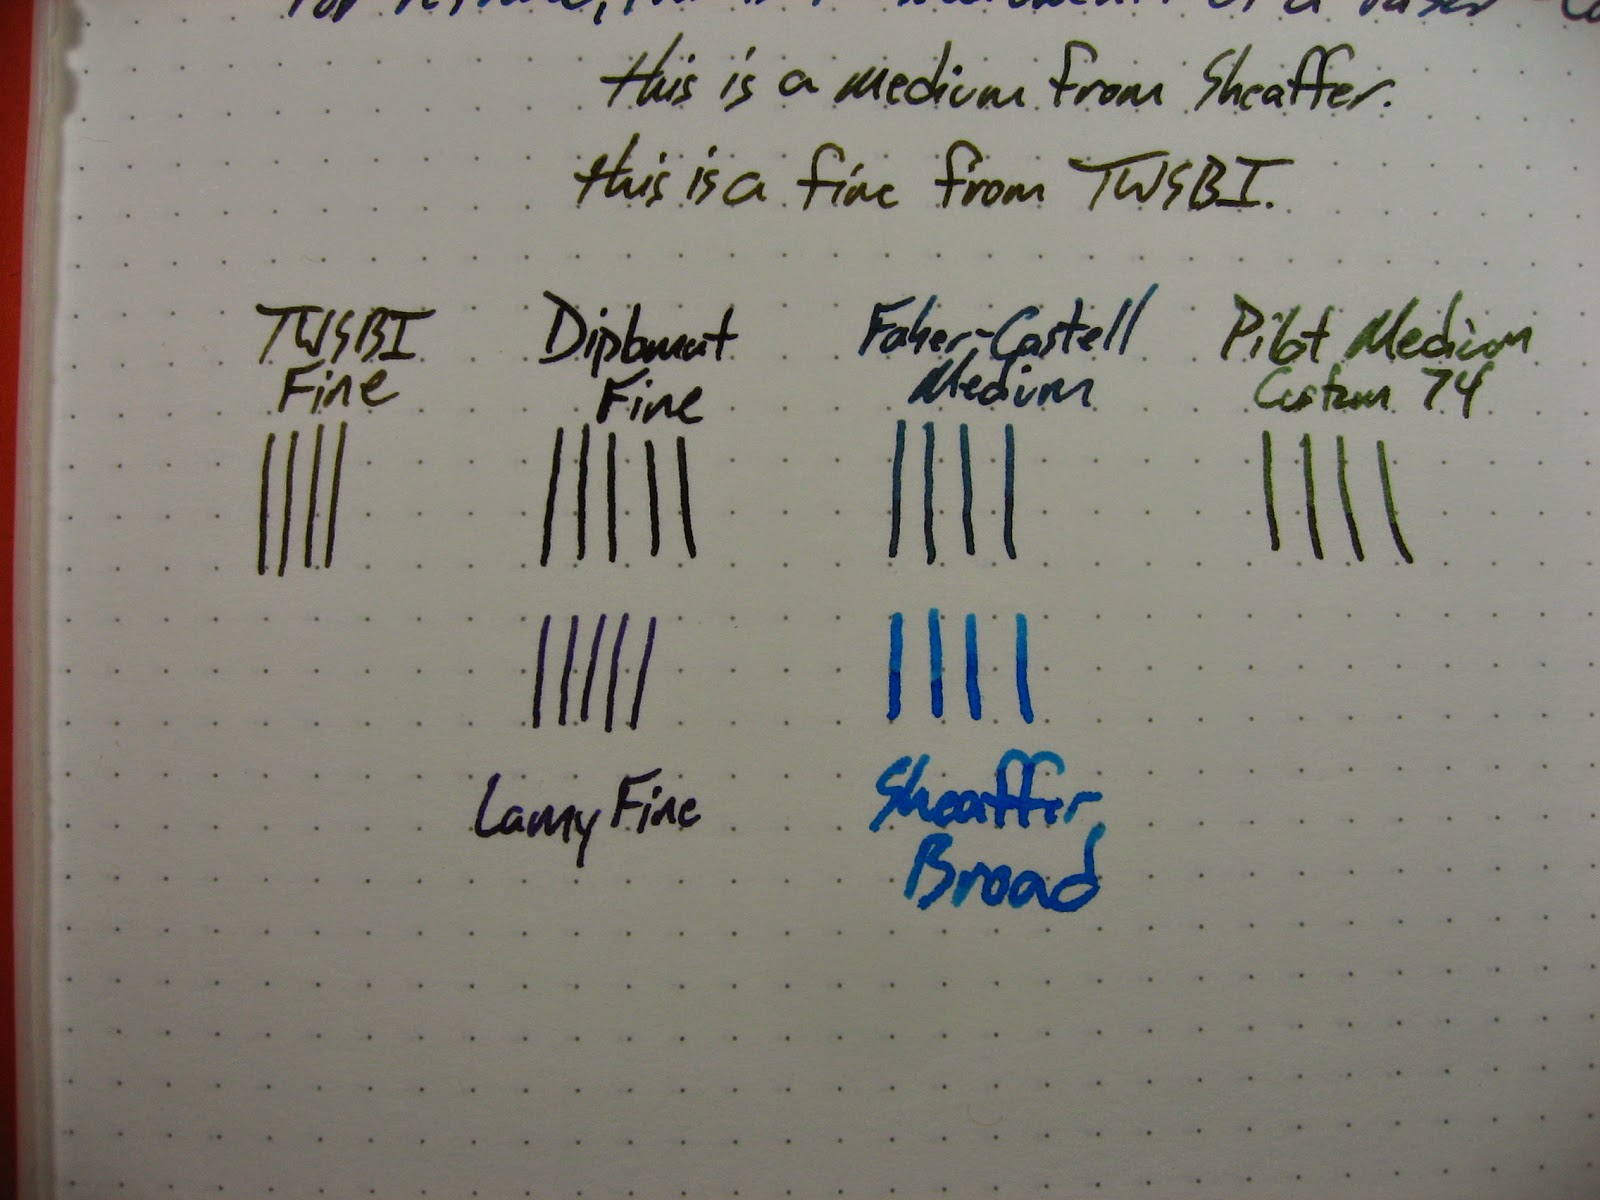 this is a medium from Sheaffer.
this is a fine from TWSBI.
TWSBI
Fine
Diplomat
Fine
Faber-Castell
Medium
Pilot Medium
Custom 74
Lamy Fine
Sheaffer
Broad